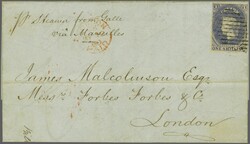 pr Steamer from Galle
via Marseilles
James Malcolmson Esqr
Messrs Forbes Forbes & Co.
London